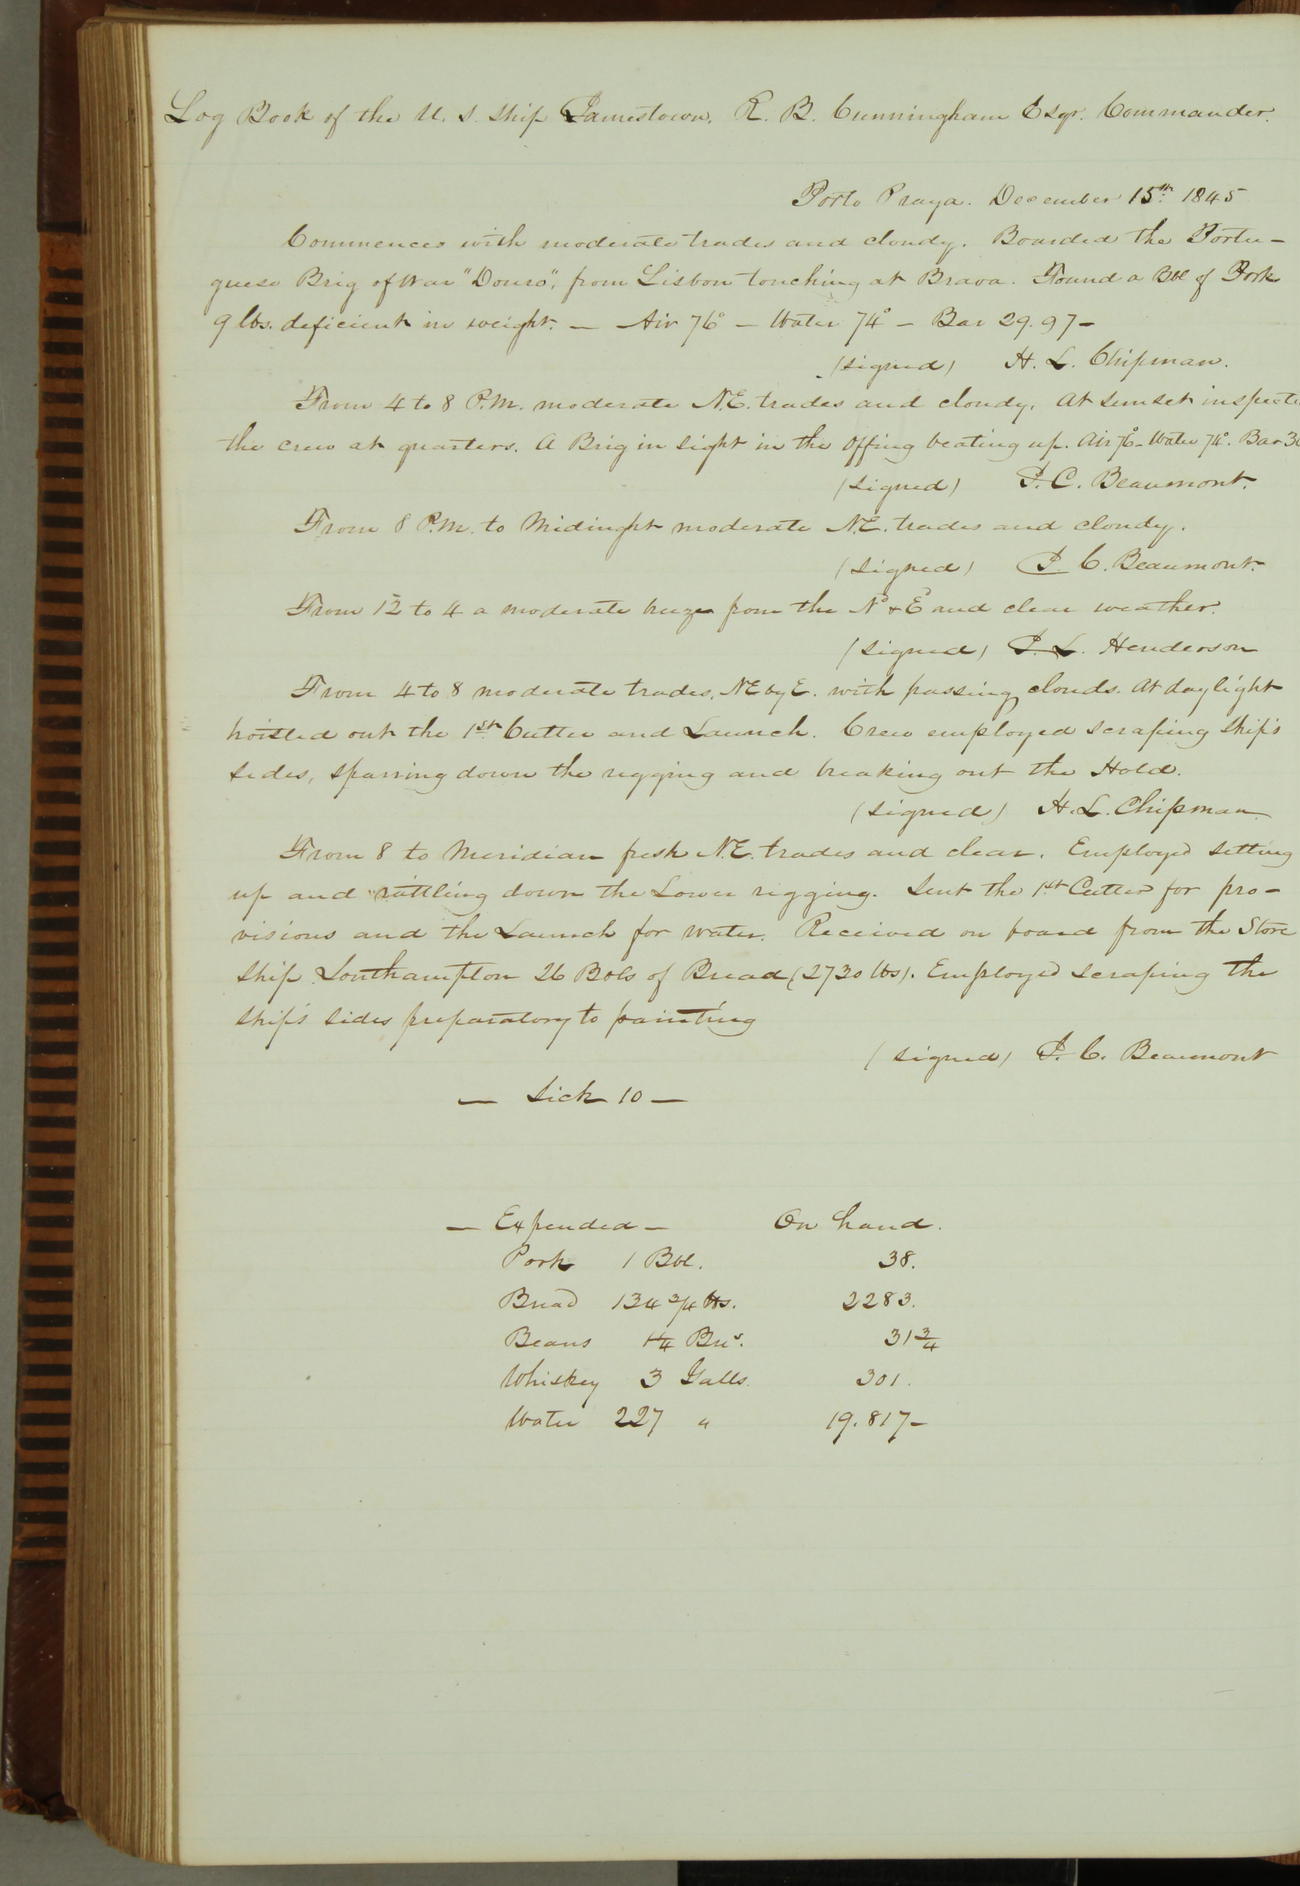 Log Book of the U. S. Ship Jamestown. R. B. Cunningham Esqr. Commander.
Porto Praya. December 15th 1845
Commences with moderate trades and cloudy. Boarded the Portu-
guese Brig of War "Douro", from Lisbon touching at Brava. Found a Bbl of Pork
9 lbs. deficient in weight. — Air 76° — Water 74° — Bar 29.97 —
(signed) H. L. Chipman.
From 4 to 8 P.M. moderate N.E. trades and cloudy. At sunset inspecte
the crew at quarters. A Brig in sight in the Offing beating up. Air 76° - Water 74°. Bar 30
(signed) J. C. Beaumont.
From 8 P.M. to Midinght moderate N.E. trades and cloudy.
(signed) J. C. Beaumont.
From 12 to 4 a moderate breeze from the Nd & Ed and clear weather.
(signed) J. L. Henderson
From 4 to 8 moderate trades, NE by E. with passing clouds. At daylight
hoisted out the 1st Cutter and Launch. Crew employed scraping Ship's
sides, sparring down the rigging and breaking out the Hold.
(signed) H. L. Chipman
From 8 to Meridian fresh N.E. trades and clear. Employed setting
up and rattling down the Lower rigging. Sent the 1st Cutter for pro-
visions and the Launch for water. Received on board from the Store
Ship Southampton 26 Bbls of Bread (2730 lbs). Employed scraping the
Ship's sides preparatory to painting
(signed) J. C. Beaumont
— Sick 10 —
— Expended — On hand.
Pork 1 Bbl. 38.
Bread 134 3/4 lbs. 2283.
Beans 1/4 Bus. 31 3/4
Whiskey 3 Galls. 301.
Water 227 " 19.817 —